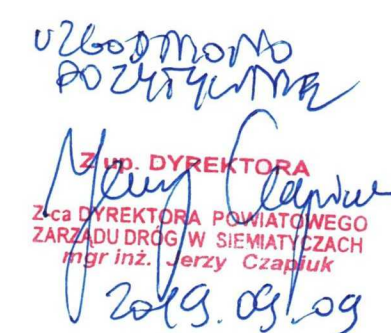 UZGODNIONO
POZYTYWNIE
Z up. DYREKTORA
Z-ca DYREKTORA POWIATOWEGO
ZARZĄDU DRÓG W SIEMIATYCZACH
mgr inż. Jerzy Czapiuk
2019.09.09